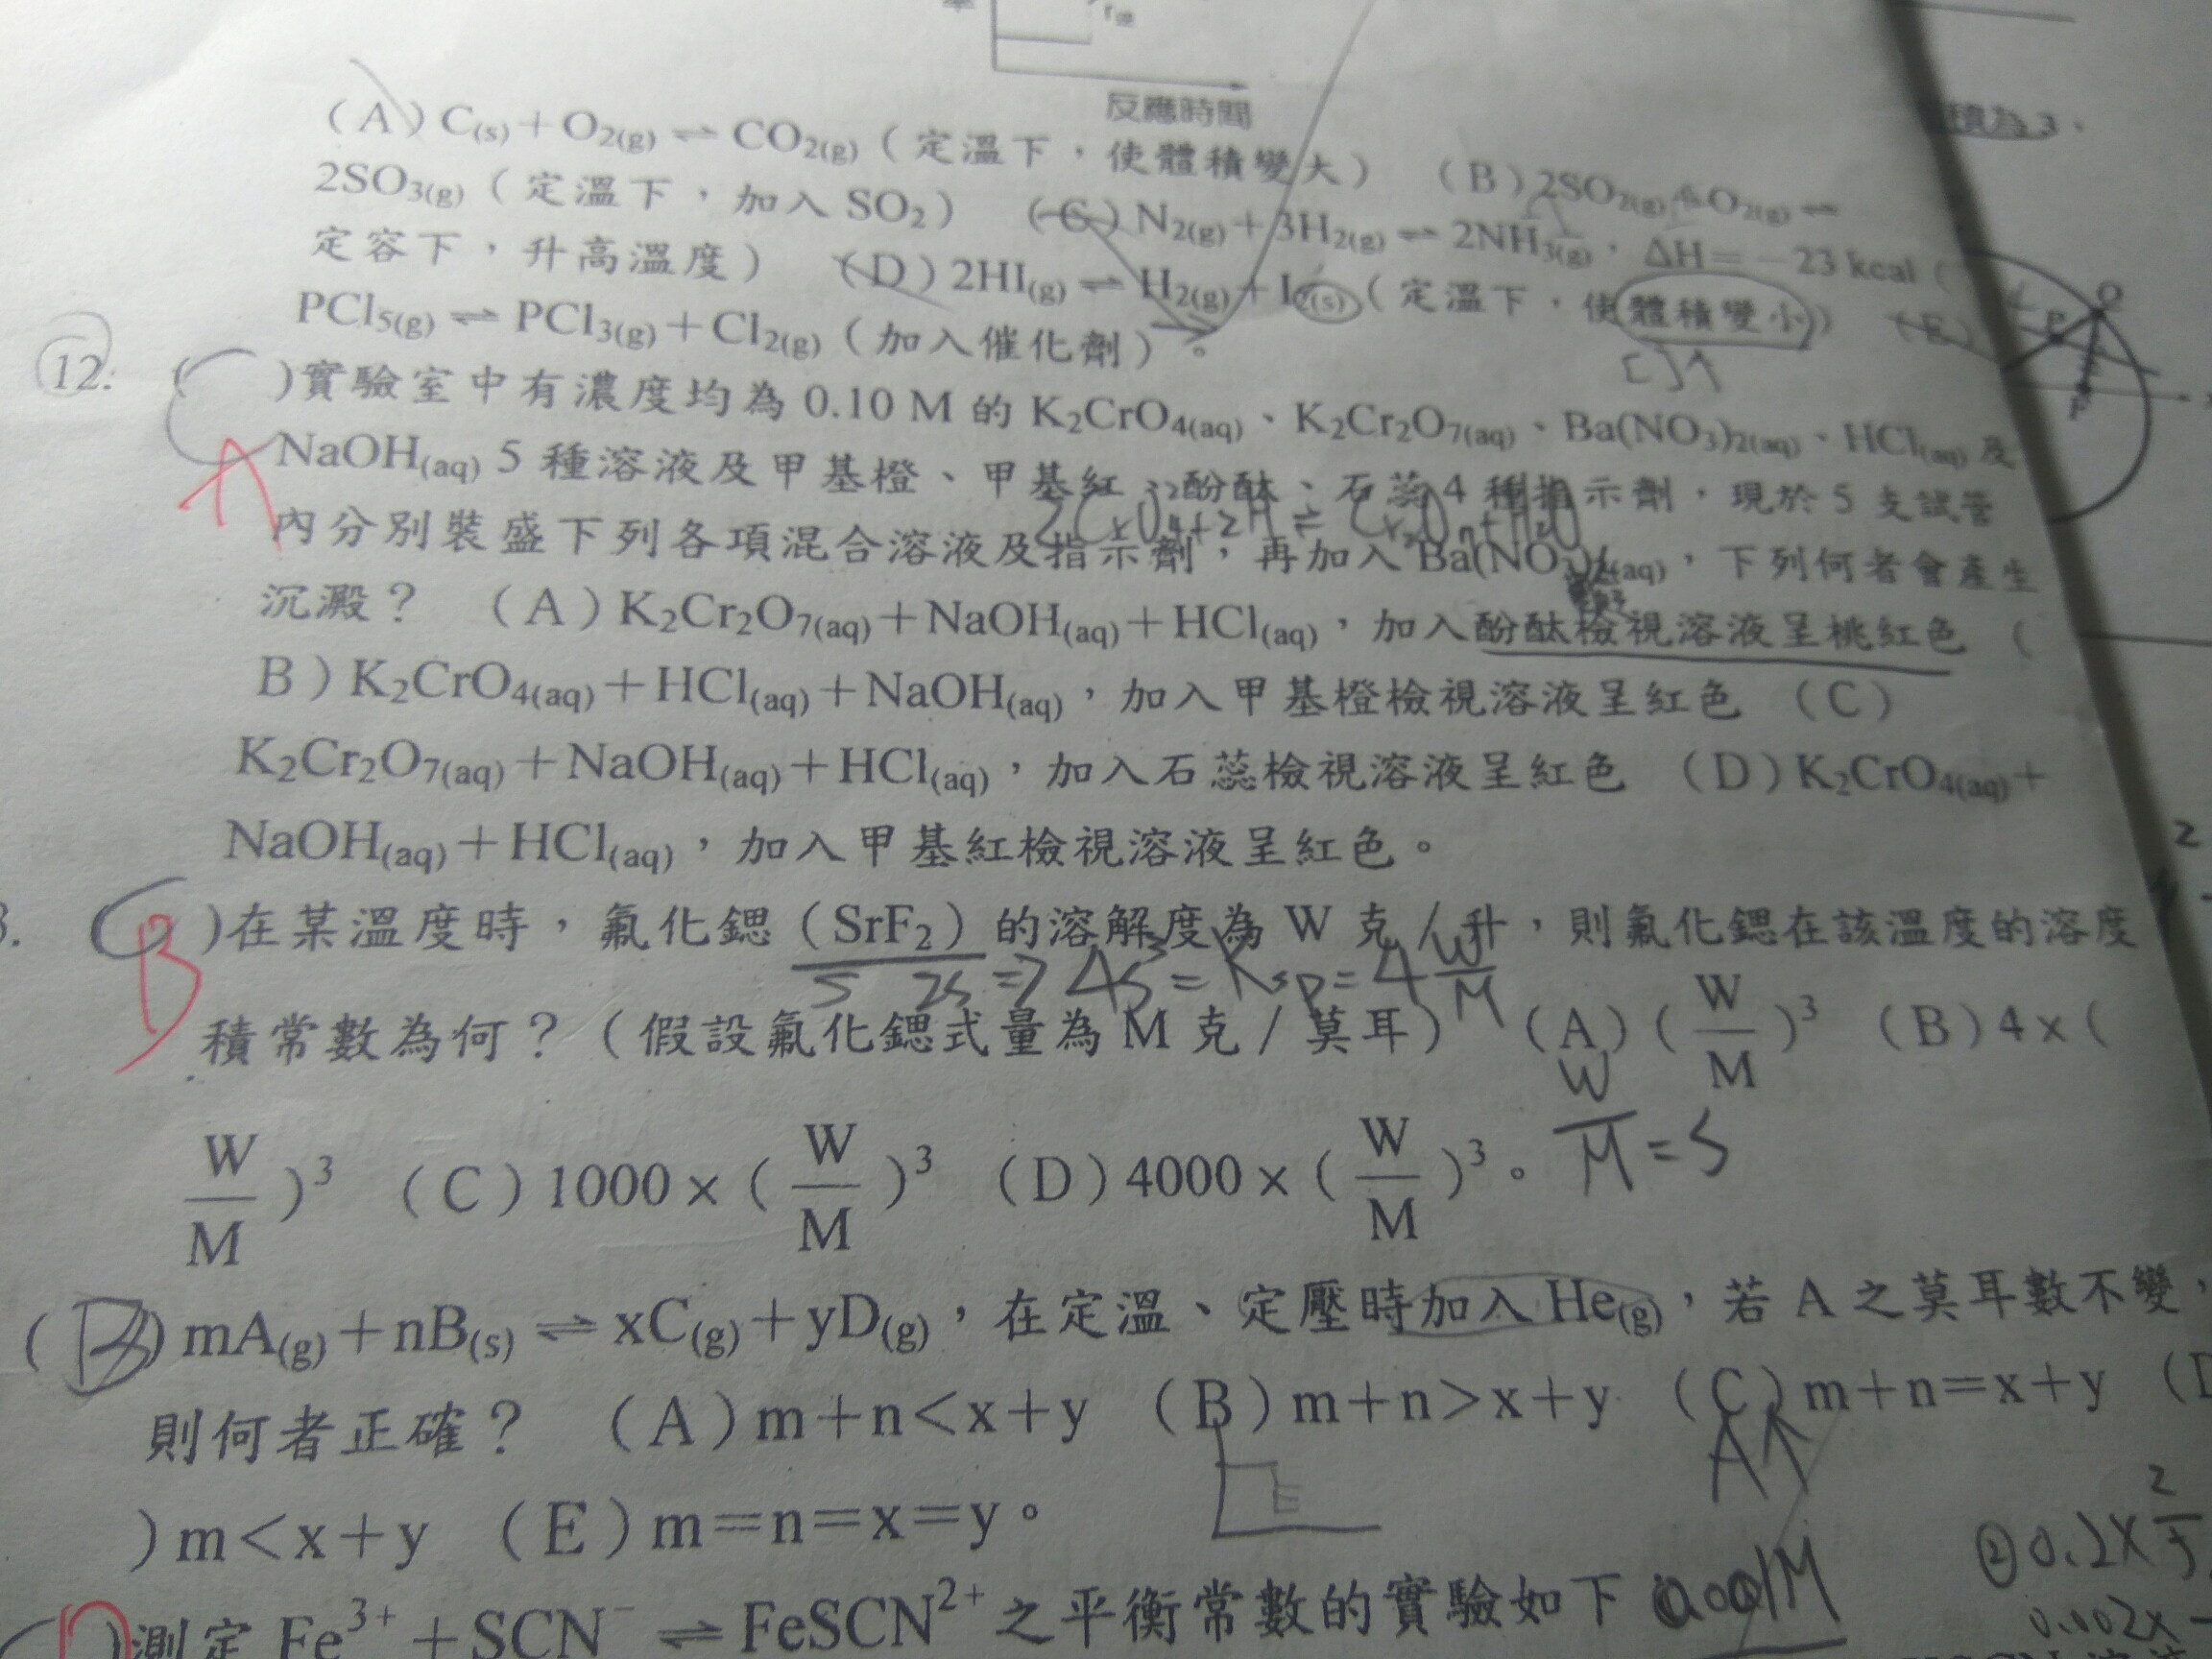 反應時間
(A) C(s)+O2(g) ⇌ CO2(g)（定溫下，使體積變大） (B) 2SO2(g)+O2(g) ⇌
積為3，
2SO3(g)（定溫下，加入 SO2） (C) N2(g)+3H2(g) ⇌ 2NH3(g)，ΔH=−23 kcal（
定容下，升高溫度） (D) 2HI(g) ⇌ H2(g)+I2(s)（定溫下，使體積變小） (E)
PCl5(g) ⇌ PCl3(g)+Cl2(g)（加入催化劑）。
[ ]↑
12. ( )實驗室中有濃度均為 0.10 M 的 K2CrO4(aq)、K2Cr2O7(aq)、Ba(NO3)2(aq)、HCl(aq) 及
A
NaOH(aq) 5 種溶液及甲基橙、甲基紅、酚酞、石蕊 4 種指示劑，現於 5 支試管
內分別裝盛下列各項混合溶液及指示劑，再加入 Ba(NO3)2(aq)，下列何者會產生
沉澱？ (A) K2Cr2O7(aq)+NaOH(aq)+HCl(aq)，加入酚酞檢視溶液呈桃紅色 (
B) K2CrO4(aq)+HCl(aq)+NaOH(aq)，加入甲基橙檢視溶液呈紅色 (C)
K2Cr2O7(aq)+NaOH(aq)+HCl(aq)，加入石蕊檢視溶液呈紅色 (D) K2CrO4(aq)+
NaOH(aq)+HCl(aq)，加入甲基紅檢視溶液呈紅色。
3. (C)在某溫度時，氟化鍶（SrF2）的溶解度為 W 克／升，則氟化鍶在該溫度的溶度
B
S 2S ⇒ 4S³=Ksp=4 W/M
積常數為何？（假設氟化鍶式量為 M 克／莫耳） (A) (W/M)³ (B) 4×(
W/M)³ (C) 1000×(W/M)³ (D) 4000×(W/M)³。
W/M=S
( D )mA(g)+nB(s) ⇌ xC(g)+yD(g)，在定溫、定壓時加入 He(g)，若 A 之莫耳數不變，
則何者正確？ (A) m+n<x+y (B) m+n>x+y (C) m+n=x+y (D
A↑
) m<x+y (E) m=n=x=y。
②0.2×2/5
0.002x
D
)測定 Fe³⁺+SCN⁻ ⇌ FeSCN²⁺ 之平衡常數的實驗如下
0.001M